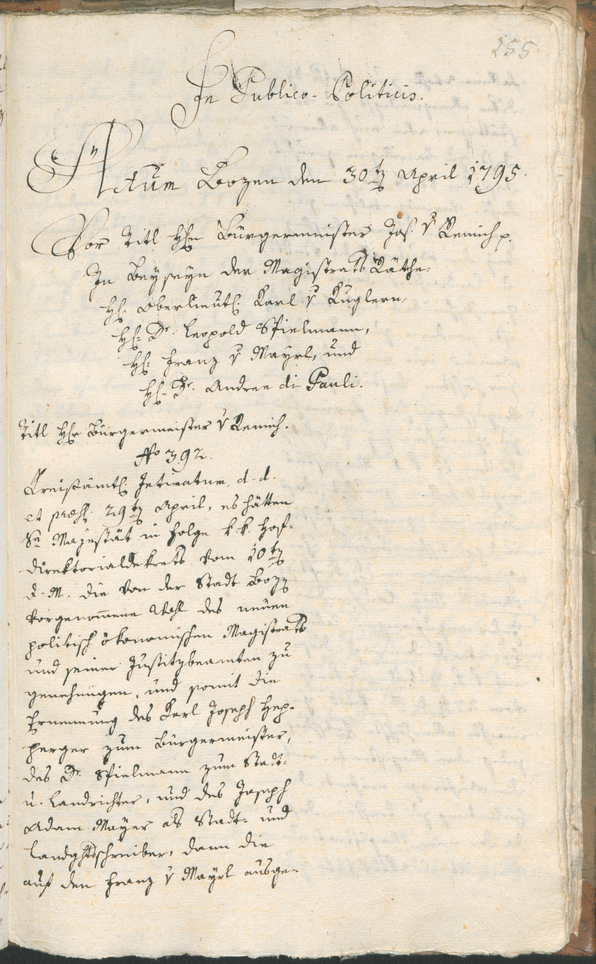 255
In Publico-Politicis.
Actum Bozen den 30ten April 1795.
Vor Titl Hrn Bürgermeister Jos. v Remich p.
In Beyseyn der Magistrats Räthe:
Hl. Oberlieut. Karl v Kuglern,
Hl. Dr. Leopold Spielmann,
Hl. Franz v Mayrl, und
Hl. Dr. Andree di Pauli.
Titl Hr Bürgermeister v Remich.
No 392.
Kreisämtl. Intimatum d. d.
et præs. 29ten April, es hätten
Se Majestät in Folge k. k. Hof-
direktorialdekrets vom 10ten
d. M. die von der Stadt Bozen
vorgenommene Wahl des neuen
politisch ökonomischen Magistrats
und seiner Justitzbeamten zu
genehmigen, und somit die
Ernennung des Karl Joseph Hep-
perger zum Bürgermeister,
des Dr. Spielmann zum Stadt-
u. Landrichter, und des Joseph
Adam Mayer als Stadt- und
Landgschreiber, dann die
auf den Franz v Mayrl ausge-